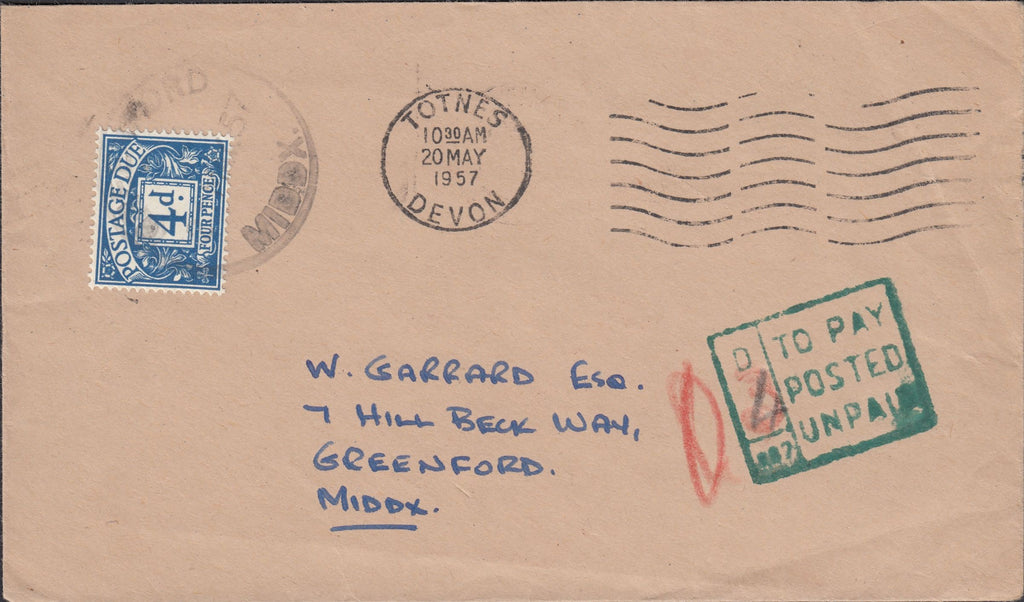 TOTNES
10 30 AM
20 MAY
1957
DEVON
MIDDX.
POSTAGE DUE
4d.
FOUR PENCE
D
TO PAY
POSTED
UNPAID
W. GARRARD ESQ.
7 HILL BECK WAY,
GREENFORD.
MIDDX.